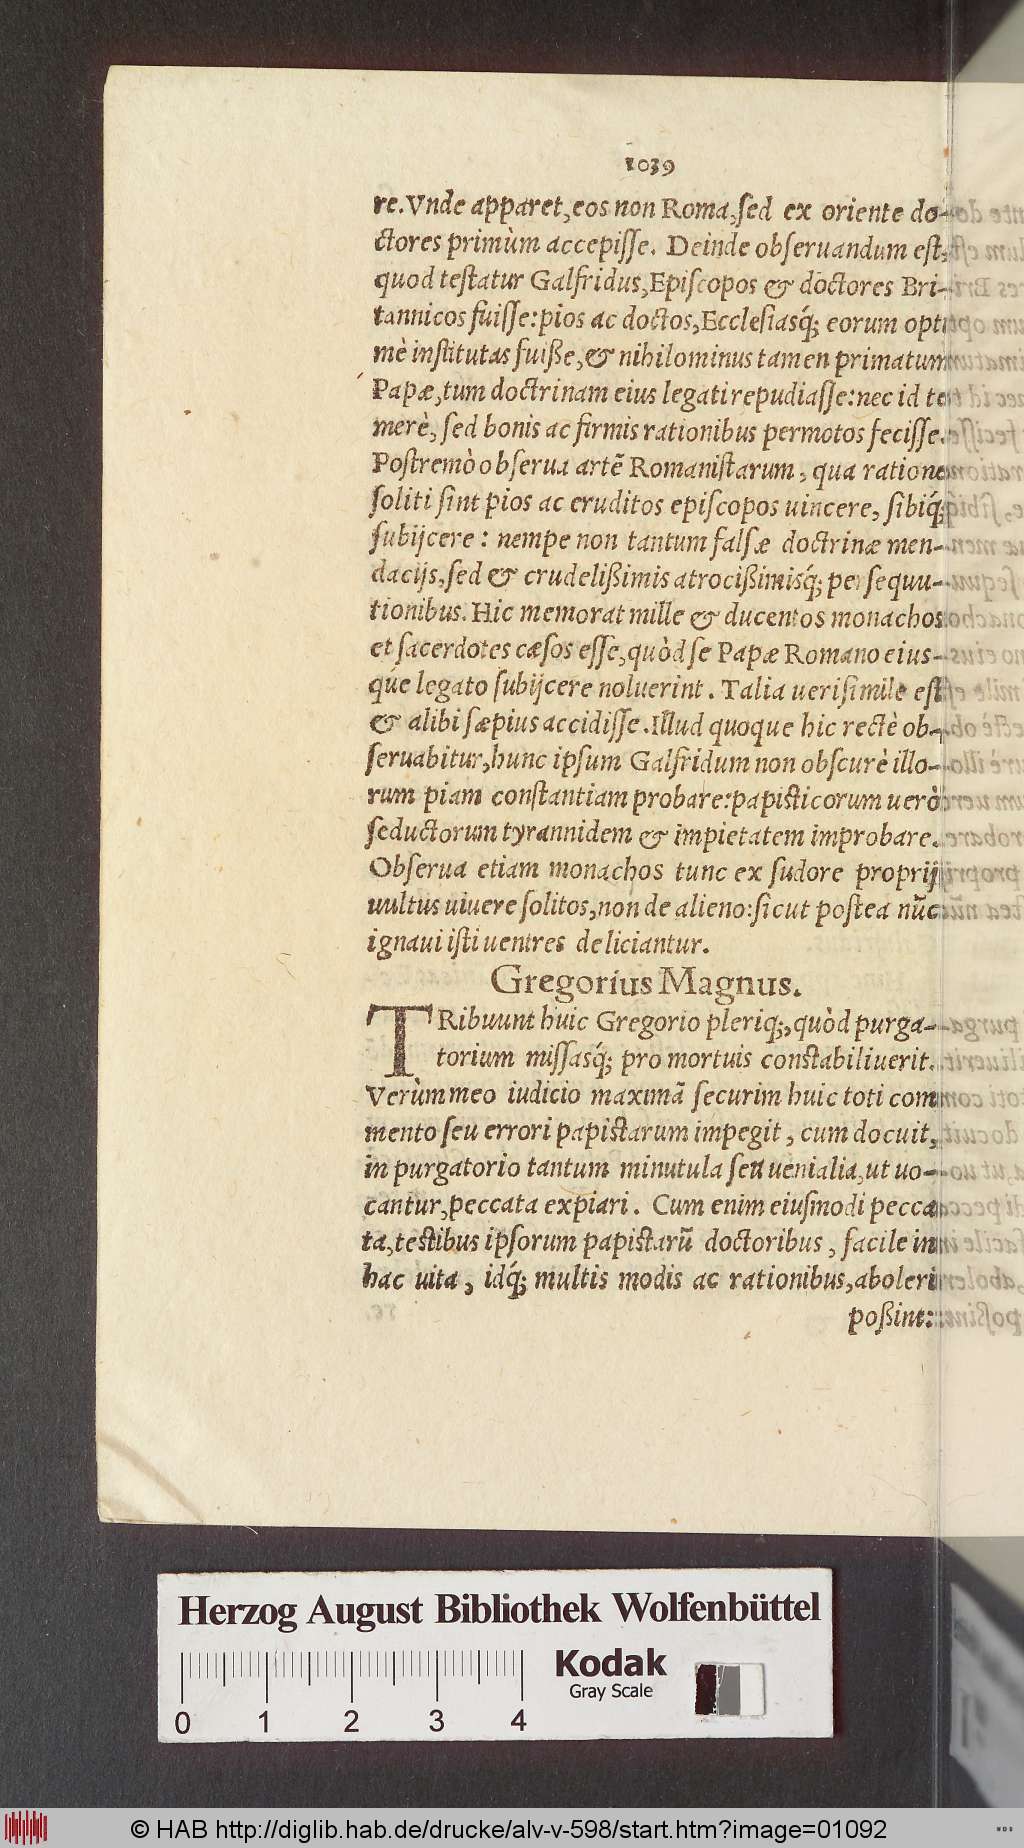 1039
re. Vnde apparet, eos non Roma, sed ex oriente do-
ctores primùm accepisse. Deinde obseruandum est,
quod testatur Galfridus, Episcopos & doctores Bri-
tannicos fuisse: pios ac doctos, Ecclesiasq́; eorum opti
mè institutas fuiße, & nihilominus tamen primatum
Papæ, tum doctrinam eius legati repudiasse: nec id te
merè, sed bonis ac firmis rationibus permotos fecisse.
Postremò obserua artẽ Romanistarum, qua ratione
soliti sint pios ac eruditos episcopos uincere, sibiq́;
subijcere: nempe non tantum falsæ doctrinæ men-
dacijs, sed & crudelißimis atrocißimisq́; persequu-
tionibus. Hic memorat mille & ducentos monachos
et sacerdotes cæsos esse, quòd se Papæ Romano eius-
que legato subijcere noluerint. Talia uerisimile est
& alibi sæpius accidisse. Illud quoque hic rectè ob-
seruabitur, hunc ipsum Galfridum non obscurè illo-
rum piam constantiam probare: papisticorum uerò
seductorum tyrannidem & impietatem improbare.
Obserua etiam monachos tunc ex sudore proprij
uultus uiuere solitos, non de alieno: sicut postea nũc
ignaui isti uentres deliciantur.
Gregorius Magnus.
TRibuunt huic Gregorio pleriq;, quòd purga-
torium missasq́; pro mortuis constabiliuerit.
Verùm meo iudicio maximã securim huic toti com
mento seu errori papistarum impegit, cum docuit,
in purgatorio tantum minutula seu uenialia, ut uo-
cantur, peccata expiari. Cum enim eiusmodi pecca
ta, testibus ipsorum papistarũ doctoribus, facile in
hac uita, idq́; multis modis ac rationibus, aboleri
poßint:
Herzog August Bibliothek Wolfenbüttel
Kodak
Gray Scale
0 1 2 3 4
© HAB http://diglib.hab.de/drucke/alv-v-598/start.htm?image=01092